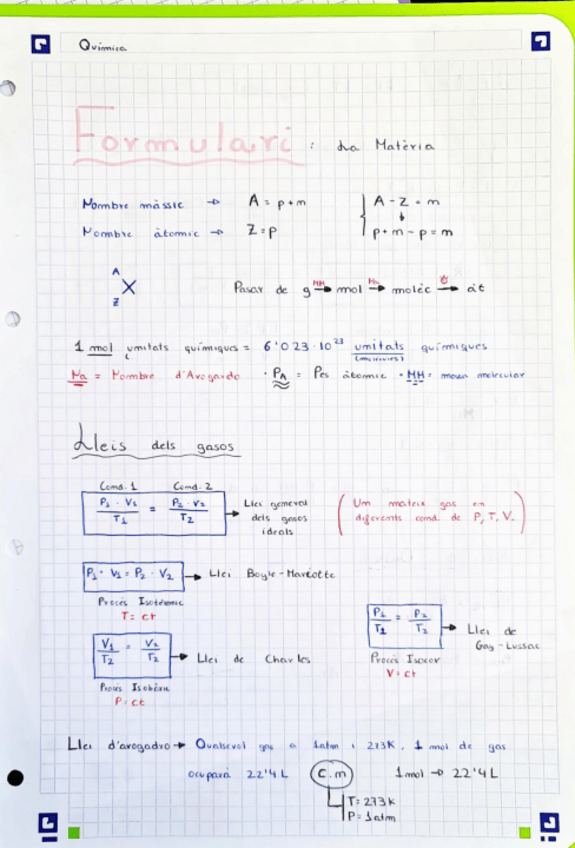 Química
Formulari : La Matèria
Nombre màssic → A = p + n
A - Z = n
Nombre àtomic → Z = p
p + n - p = n
A
X
Z
Pasar de g → MM mol → Na molèc → at
1 mol unitats químiques = 6'023·10²³ unitats químiques
(molècules)
Na = Nombre d'Avogardo · PA = Pes àtomic · MM = massa molecular
Lleis dels gasos
Cond. 1 Cond. 2
P₁ · V₁ / T₁ = P₂ · V₂ / T₂ → Llei general dels gasos ideals
(Um mateix gas en diferents cond. de P, T, V.)
P₁ · V₁ = P₂ · V₂ → Llei Boyle-Mariotte
Procés Isotèrmic
T = ct
P₁ / T₁ = P₂ / T₂ → Llei de Gay-Lussac
Procés Isocor
V = ct
V₁ / T₂ = V₂ / T₂ → Llei de Charles
Procés Isobàric
P = ct
Llei d'avogadro → Qualsevol gas a 1atm i 273K, 1 mol de gas
ocuparà 22'4 L C.n 1mol → 22'4 L
T = 273 K
P = 1atm